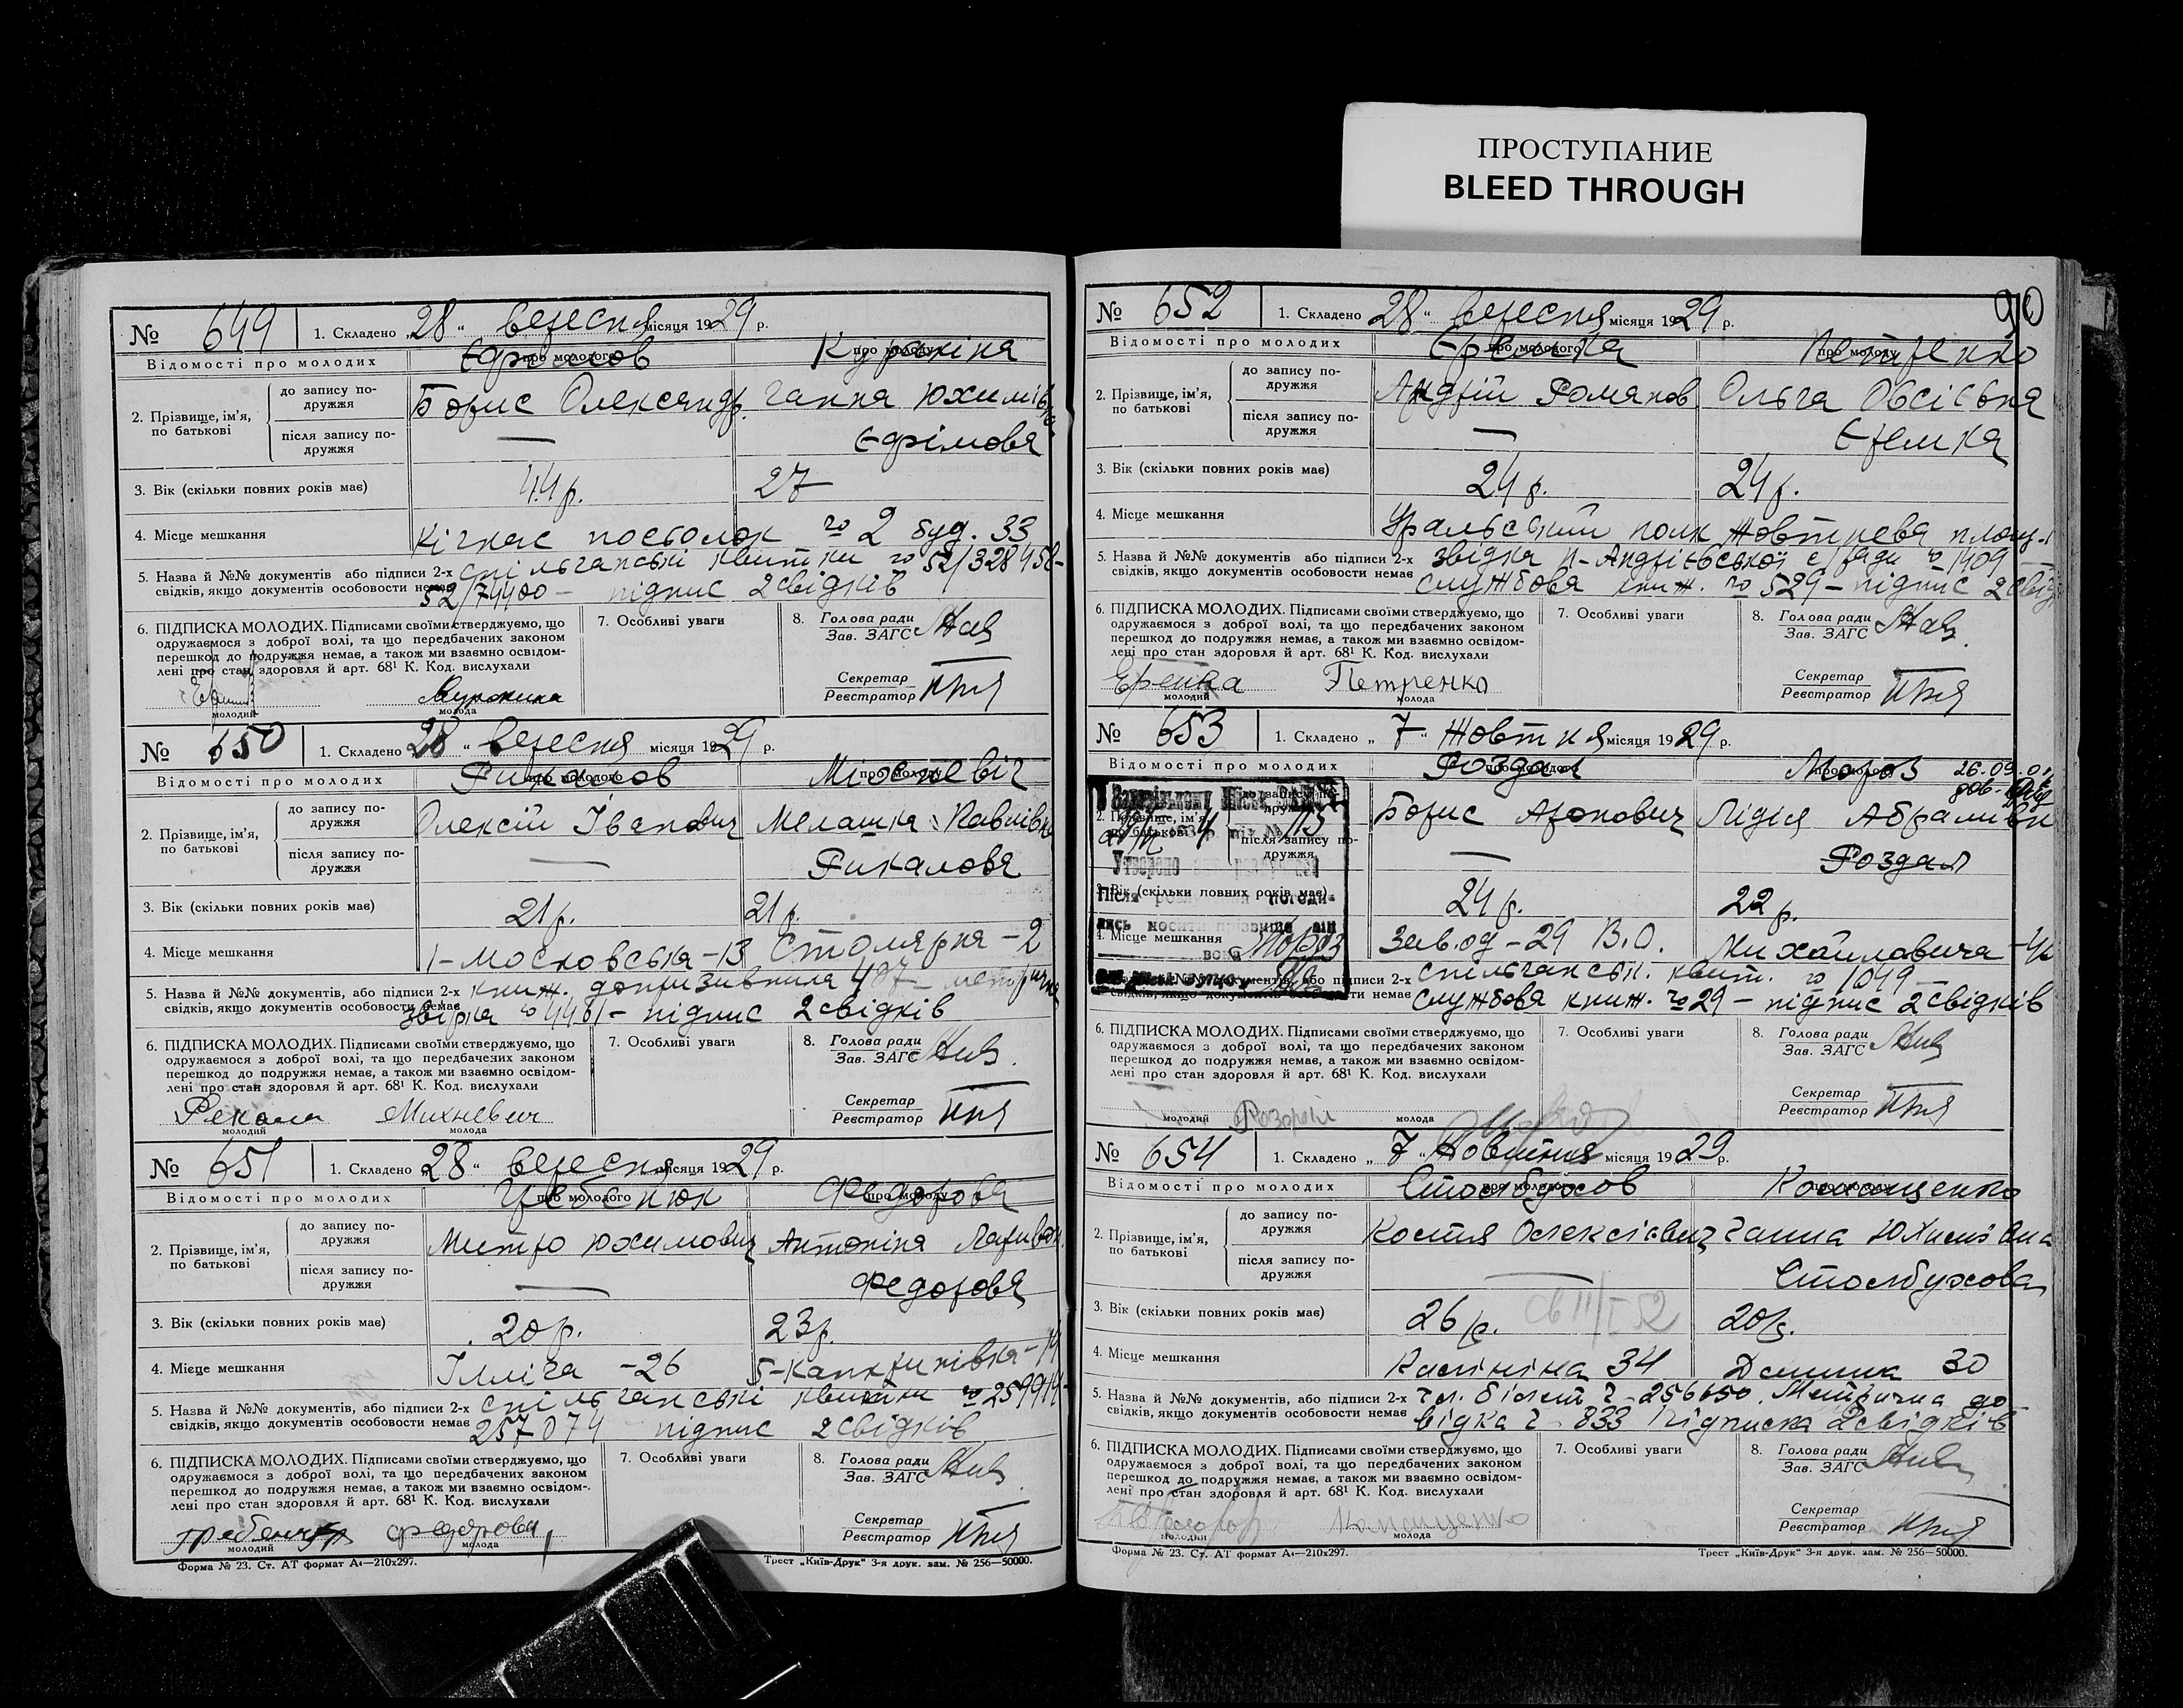 ПРОСТУПАНИЕ
BLEED THROUGH
№ 649 1. Складено „28“ вересня місяця 1929 р.
Відомості про молодих про молодого про молоду
Куракіна
2. Прізвище, ім'я, по батькові
до запису по-дружжя Борис Олександр. Ганна Юхимівна
після запису по-дружжя — Єфрімова
3. Вік (скільки повних років має) 44 р. 27
4. Місце мешкання посьолок № 2 буд. 33
5. Назва й №№ документів або підписи 2-х спільчанські квитки № 52/328458-
свідків, якщо документів особовости немає 52/74400 — підпис 2 свідків
6. ПІДПИСКА МОЛОДИХ. Підписами своїми стверджуємо, що
одружаємося з доброї волі, та що передбачених законом
перешкод до подружжя немає, а також ми взаємно освідом-
лені про стан здоровля й арт. 68¹ К. Код. вислухали
молодий молода
7. Особливі уваги
8. Голова ради
Зав. ЗАГС
Секретар
Реєстратор
№ 650 1. Складено „28“ вересня місяця 1929 р.
Відомості про молодих про молодого про молоду
2. Прізвище, ім'я, по батькові
до запису по-дружжя Олексій Іванович Мелашка Павлівна
після запису по-дружжя — Рикалова
3. Вік (скільки повних років має) 21 р. 21 р.
4. Місце мешкання 1-Московська-13 Столярна-2
5. Назва й №№ документів, або підписи 2-х книж. допризивника 407 — метрична
свідків, якщо документів особовости немає № 4461 — підпис 2 свідків
6. ПІДПИСКА МОЛОДИХ. Підписами своїми стверджуємо, що
одружаємося з доброї волі, та що передбачених законом
перешкод до подружжя немає, а також ми взаємно освідом-
лені про стан здоровля й арт. 68¹ К. Код. вислухали
Михневич
молодий молода
7. Особливі уваги
8. Голова ради
Зав. ЗАГС
Секретар
Реєстратор
№ 651 1. Складено „28“ вересня місяця 1929 р.
Відомості про молодих про молодого про молоду
Федорова
2. Прізвище, ім'я, по батькові
до запису по-дружжя Митро Юхимович Антоніна
після запису по-дружжя — Федорова
3. Вік (скільки повних років має) 20 р. 23 р.
4. Місце мешкання Ілліча -26
5. Назва й №№ документів, або підписи 2-х спільчанські квитки № 259914-
свідків, якщо документів особовости немає 257074 підпис 2 свідків
6. ПІДПИСКА МОЛОДИХ. Підписами своїми стверджуємо, що
одружаємося з доброї волі, та що передбачених законом
перешкод до подружжя немає, а також ми взаємно освідом-
лені про стан здоровля й арт. 68¹ К. Код. вислухали
Федорова
молодий молода
7. Особливі уваги
8. Голова ради
Зав. ЗАГС
Секретар
Реєстратор
Форма № 23. Ст. АТ формат А₄—210х297. Трест „Київ-Друк“ 3-я друк. зам. № 256—50000.
90
№ 652 1. Складено „28“ вересня місяця 1929 р.
Відомості про молодих про молодого про молоду
2. Прізвище, ім'я, по батькові
до запису по-дружжя Андрій Романов Ольга Овсіївна
після запису по-дружжя —
3. Вік (скільки повних років має) 24 р. 24 р.
4. Місце мешкання Уральський полк Жовтнева площ.
5. Назва й №№ документів або підписи 2-х № 1409 —
свідків, якщо документів особовости немає службова книж. № 529 — підпис 2 свід
6. ПІДПИСКА МОЛОДИХ. Підписами своїми стверджуємо, що
одружаємося з доброї волі, та що передбачених законом
перешкод до подружжя немає, а також ми взаємно освідом-
лені про стан здоровля й арт. 68¹ К. Код. вислухали
Петренко
молодий молода
7. Особливі уваги
8. Голова ради
Зав. ЗАГС
Секретар
Реєстратор
№ 653 1. Складено „7“ Жовтня місяця 1929 р.
Відомості про молодих про молодого про молоду
Мороз 26.09.01
2. Прізвище, ім'я, по батькові
до запису по-дружжя Борис Аронович Лідія
після запису по-дружжя — Роздал
3. Вік (скільки повних років має) 24 р. 22 р.
4. Місце мешкання Завод-29 В.О. Михайловича
5. Назва й №№ документів, або підписи 2-х спільчанськ. квит. № 1049 —
свідків, якщо документів особовости немає службова книж. № 29 — підпис 2 свідків
Після погоди-
лись носити прізвище він
вона Мороз
6. ПІДПИСКА МОЛОДИХ. Підписами своїми стверджуємо, що
одружаємося з доброї волі, та що передбачених законом
перешкод до подружжя немає, а також ми взаємно освідом-
лені про стан здоровля й арт. 68¹ К. Код. вислухали
молодий молода
7. Особливі уваги
8. Голова ради
Зав. ЗАГС
Секретар
Реєстратор
№ 654 1. Складено „7“ Жовтня місяця 1929 р.
Відомості про молодих про молодого про молоду
2. Прізвище, ім'я, по батькові
до запису по-дружжя Костя Олексієвич Ганна Юхимівна
після запису по-дружжя — Столбухова
3. Вік (скільки повних років має) 26 р. 20 р.
4. Місце мешкання Калініна 34 30
5. Назва й №№ документів, або підписи 2-х чл. білет № 256650. Метрична до
свідків, якщо документів особовости немає відка № 833 Підписка 2 свідків
6. ПІДПИСКА МОЛОДИХ. Підписами своїми стверджуємо, що
одружаємося з доброї волі, та що передбачених законом
перешкод до подружжя немає, а також ми взаємно освідом-
лені про стан здоровля й арт. 68¹ К. Код. вислухали
молодий молода
7. Особливі уваги
8. Голова ради
Зав. ЗАГС
Секретар
Реєстратор
Форма № 23. Ст. АТ формат А₄—210х297. Трест „Київ-Друк“ 3-я друк. зам. № 256—50000.